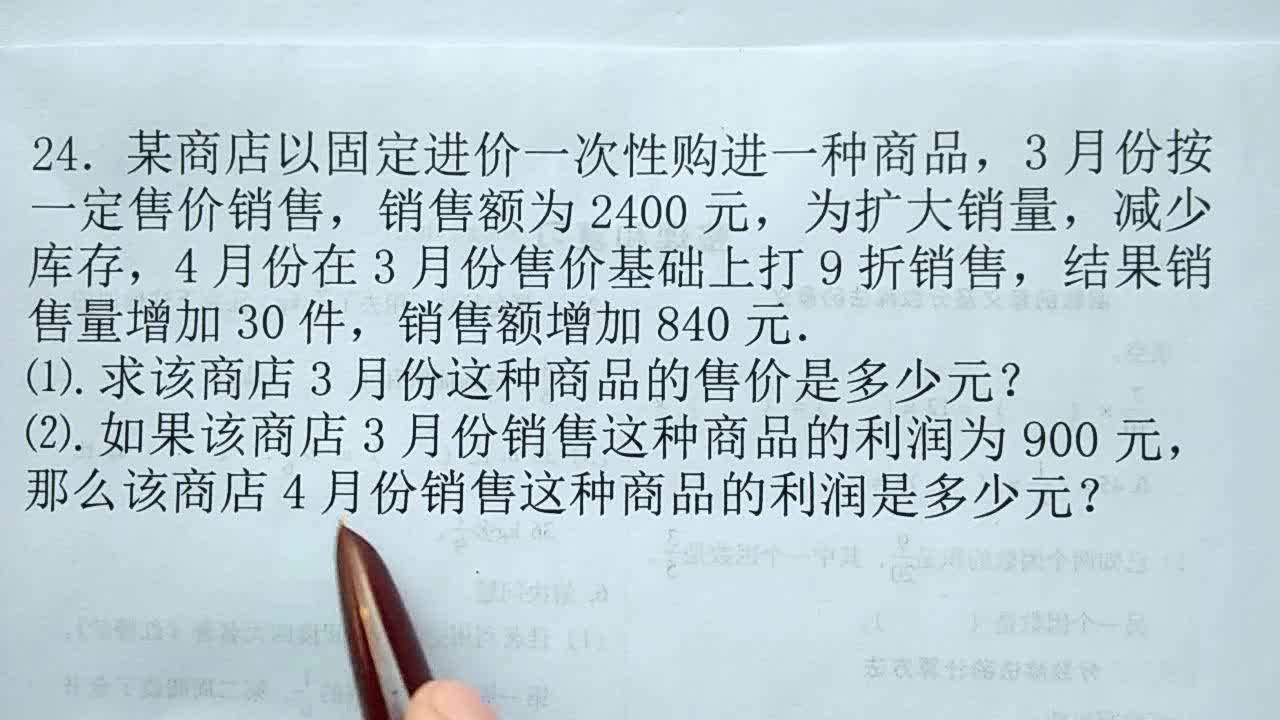 24. 某商店以固定进价一次性购进一种商品，3 月份按
一定售价销售，销售额为 2400 元，为扩大销量，减少
库存，4 月份在 3 月份售价基础上打 9 折销售，结果销
售量增加 30 件，销售额增加 840 元.
⑴. 求该商店 3 月份这种商品的售价是多少元？
⑵. 如果该商店 3 月份销售这种商品的利润为 900 元，
那么该商店 4 月份销售这种商品的利润是多少元？